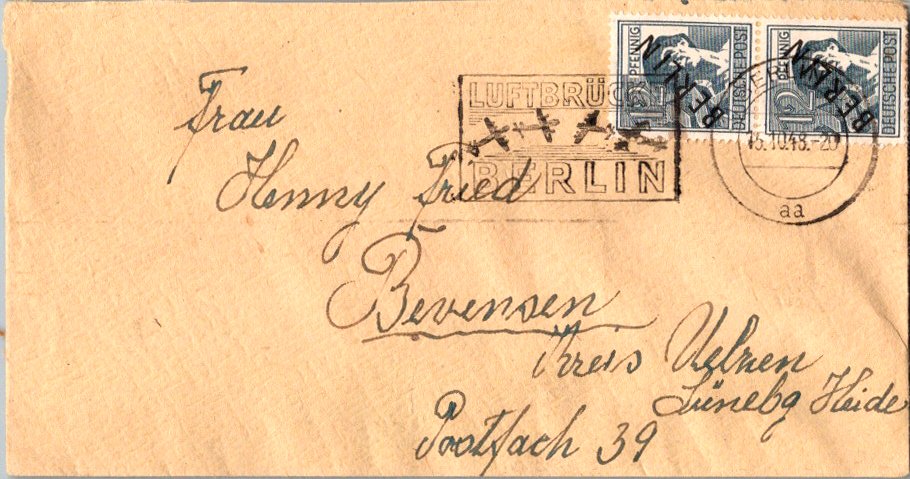 PFENNIG 12 DEUTSCHE POST BERLIN
PFENNIG 12 DEUTSCHE POST BERLIN
LUFTBRÜCKE
BERLIN
15.10.48.-20
aa
Frau
Henny Fried
Bevensen
Kreis Uelzen
Lünebg Heide
Postfach 39